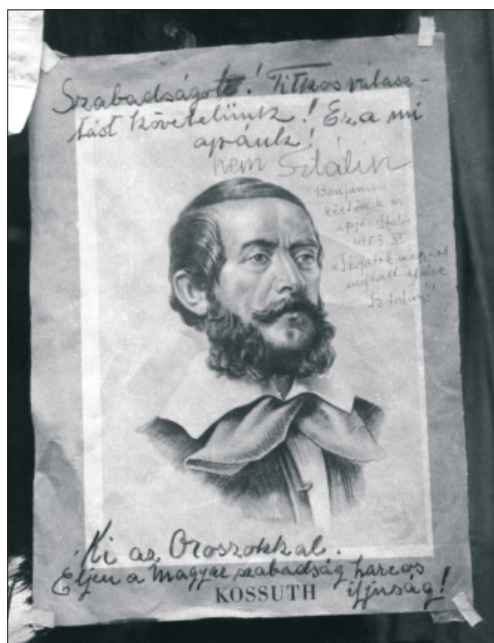 Szabadságot! Titkos válasz-
tást követelünk! Ez a mi
apánk!
nem Sztálin
Benjamin
költőnek az
apja Sztálin
1953
meghalt apátok
Sztálin!
Ki az Oroszokkal.
Éljen a Magyar szabadság harcos
ifjuság!
KOSSUTH